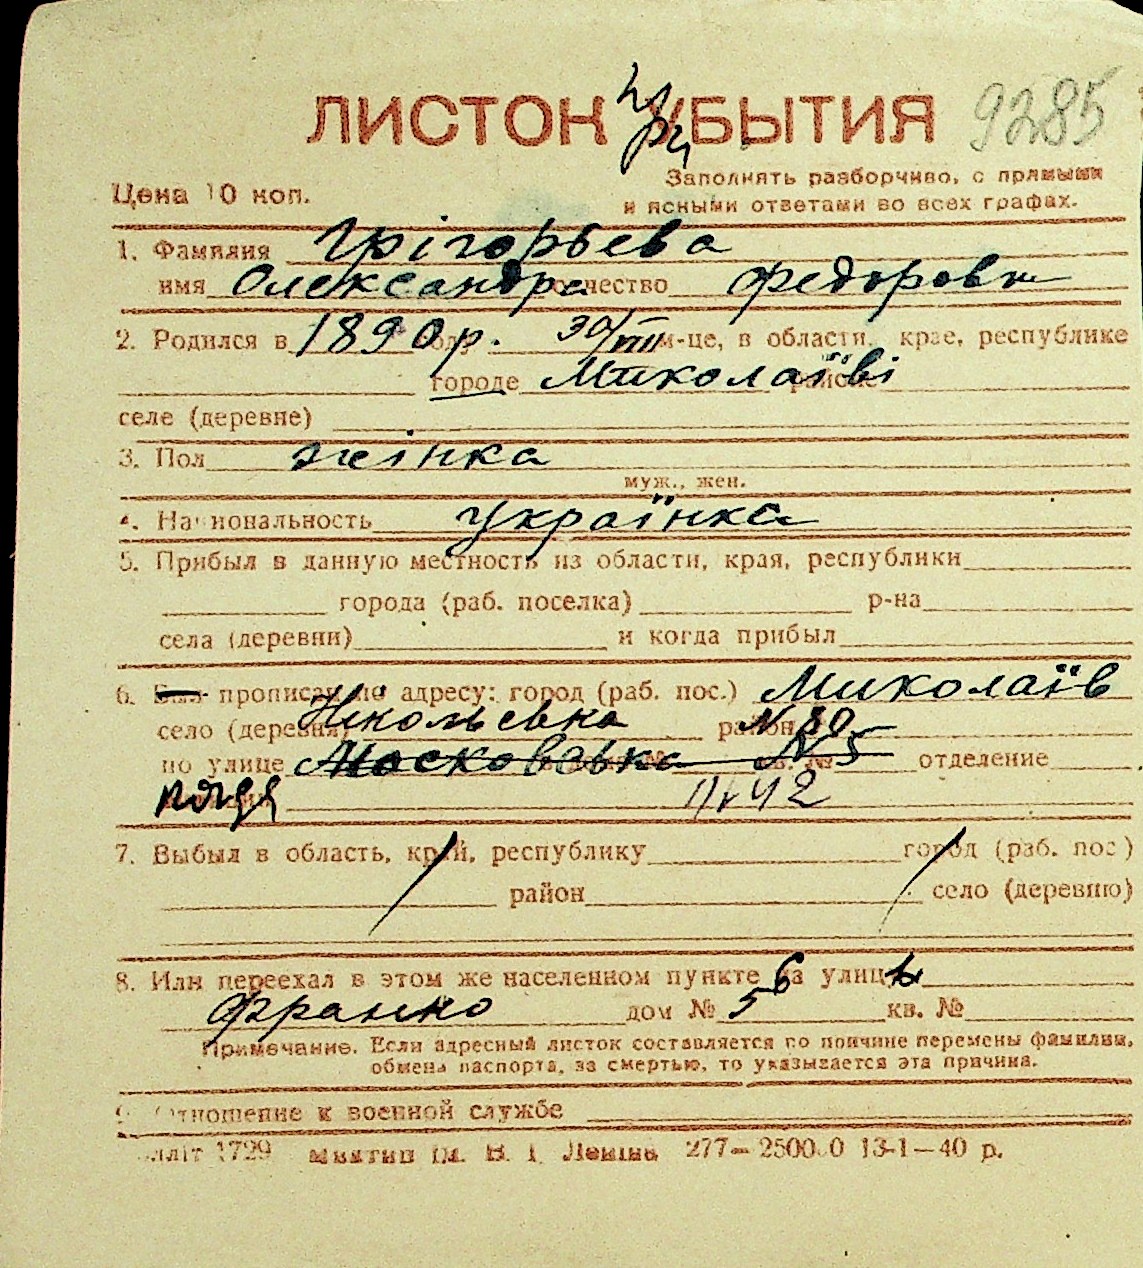 ЛИСТОК УБЫТИЯ при 9285
Цена 10 коп. Заполнять разборчиво, с прямыми
и ясными ответами во всех графах.
1. Фамилия Григорьева
имя Олександра отчество Федоровн
2. Родился в 1890 р. году 30/VIII м-це, в области, крае, республике
городе Миколаїві районе
селе (деревне)
3. Пол жінка
муж., жен.
4. Национальность українка
5. Прибыл в данную местность из области, края, республики
города (раб. поселка) р-на
села (деревни) и когда прибыл
6. Был прописан по адресу: город (раб. пос.) Миколаїв
село (деревня) Нікольська район N 80
по улице Московська N 5 отделение
42
7. Выбыл в область, край, республику город (раб. пос.)
район село (деревню)
8. Или переехал в этом же населенном пункте на улицы
Франко дом № 5 6 кв. №
Примечание. Если адресный листок составляется по причине перемены фамилии,
обмена паспорта, за смертью, то указывается эта причина.
9. Отношение к военной службе
лліт 1729 ім. В. І. Леніна 277—250000 13-1—40 р.